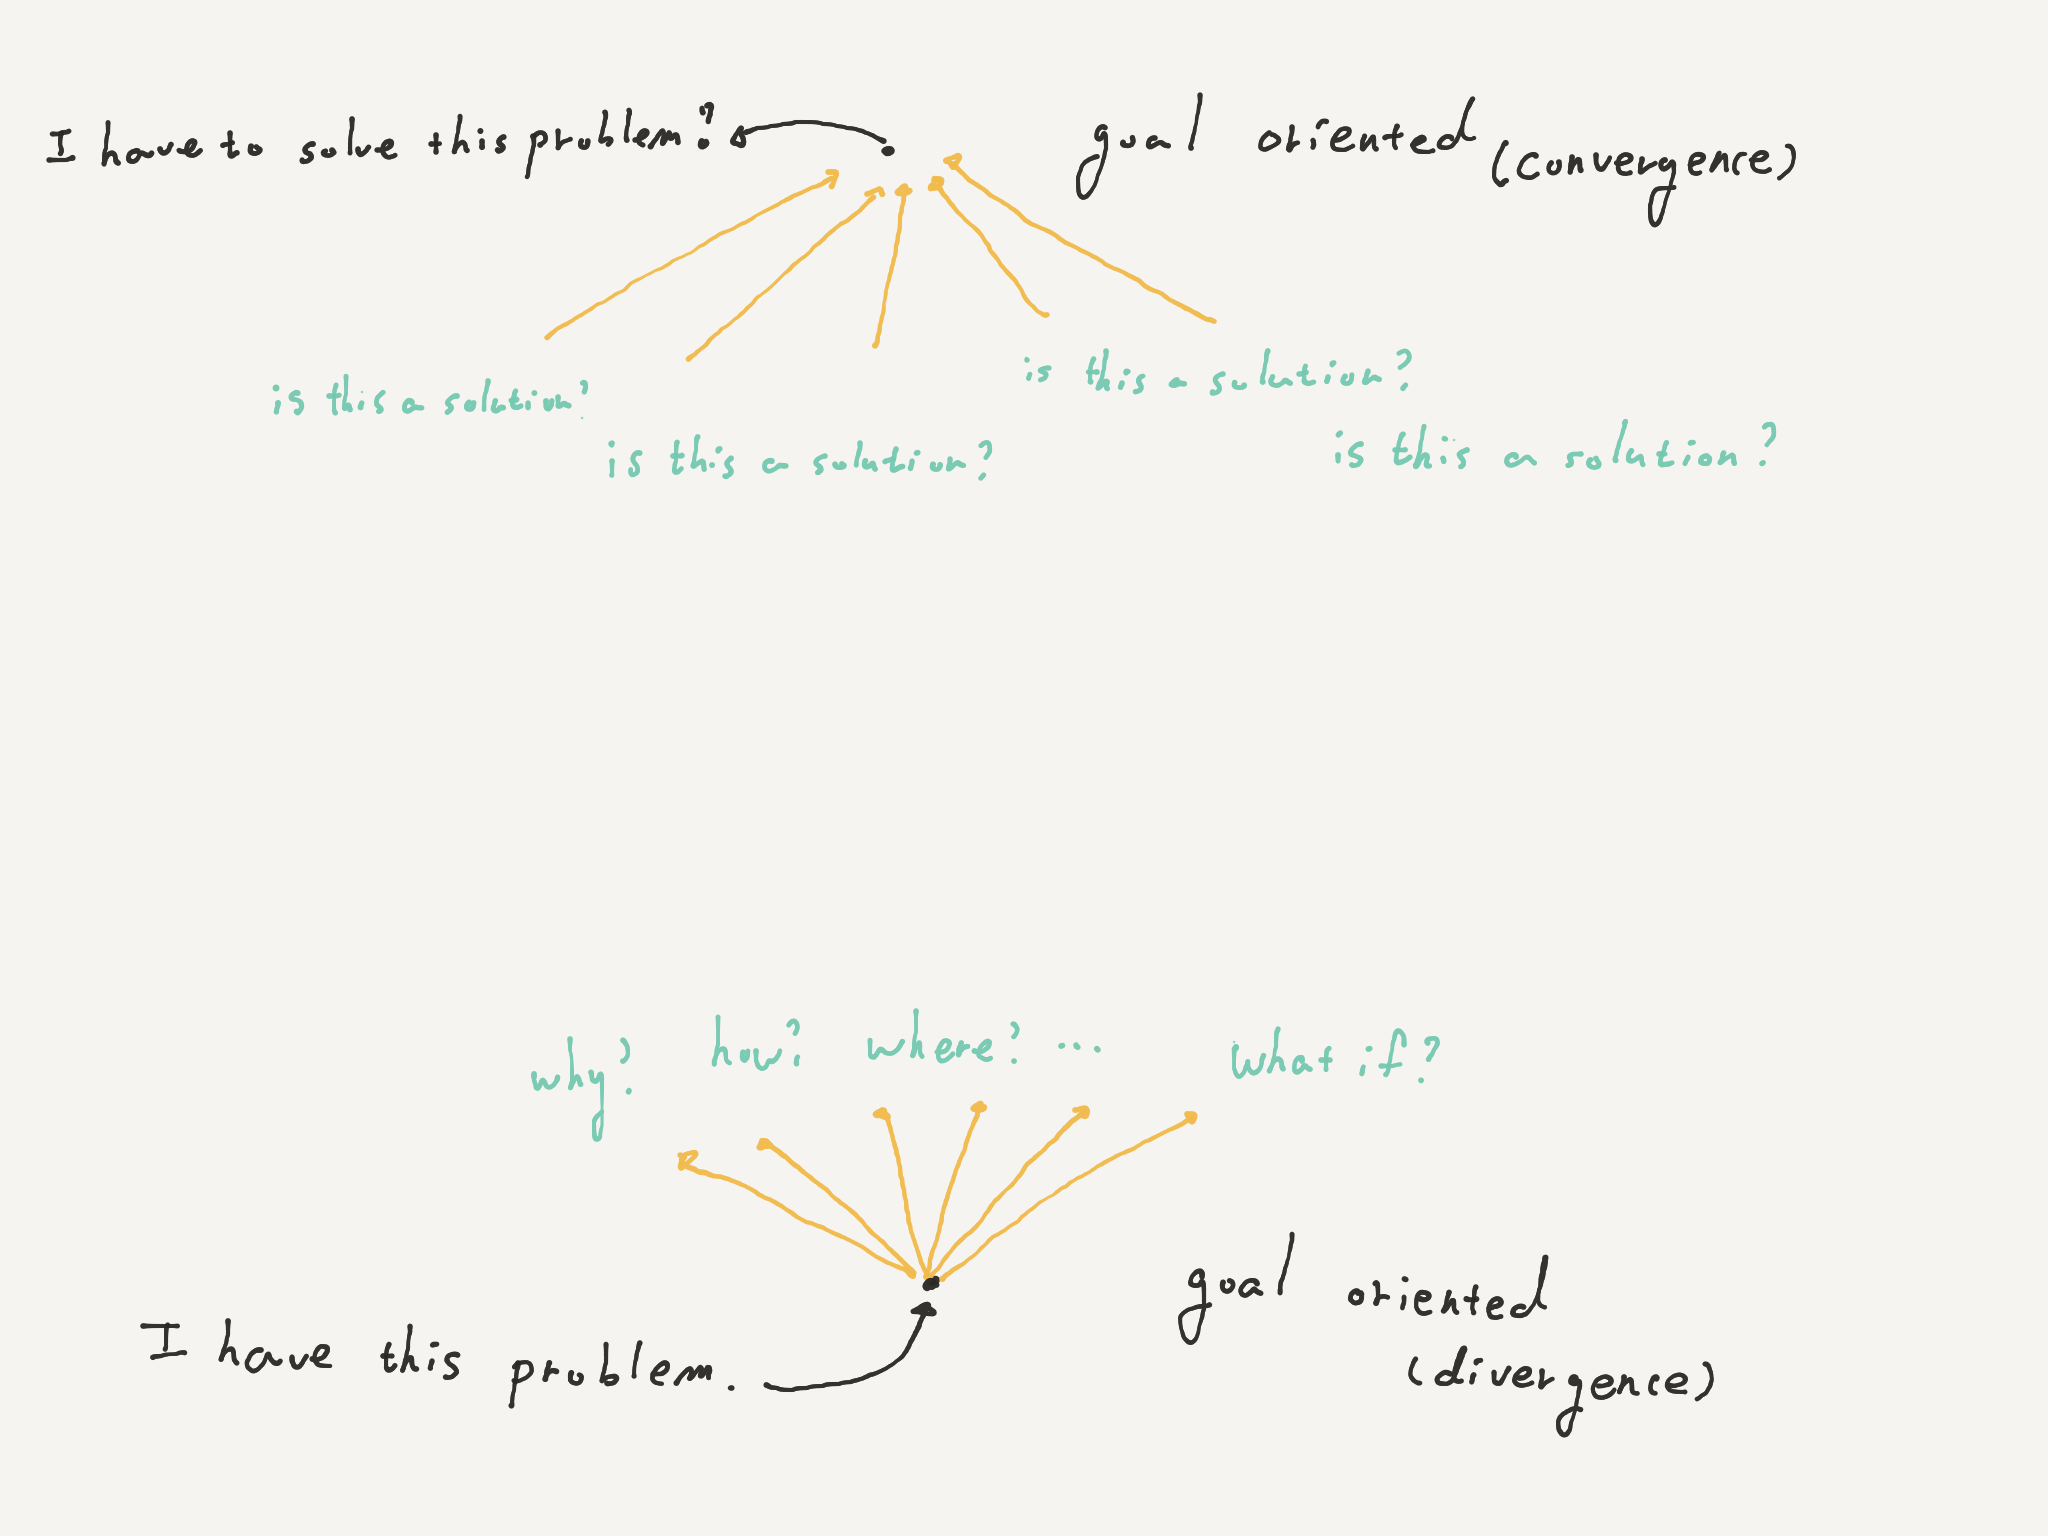 I have to solve this problem?
goal oriented (convergence)
is this a solution?
is this a solution?
is this a solution?
is this a solution?
why? how? where? ... what if?
I have this problem.
goal oriented
(divergence)